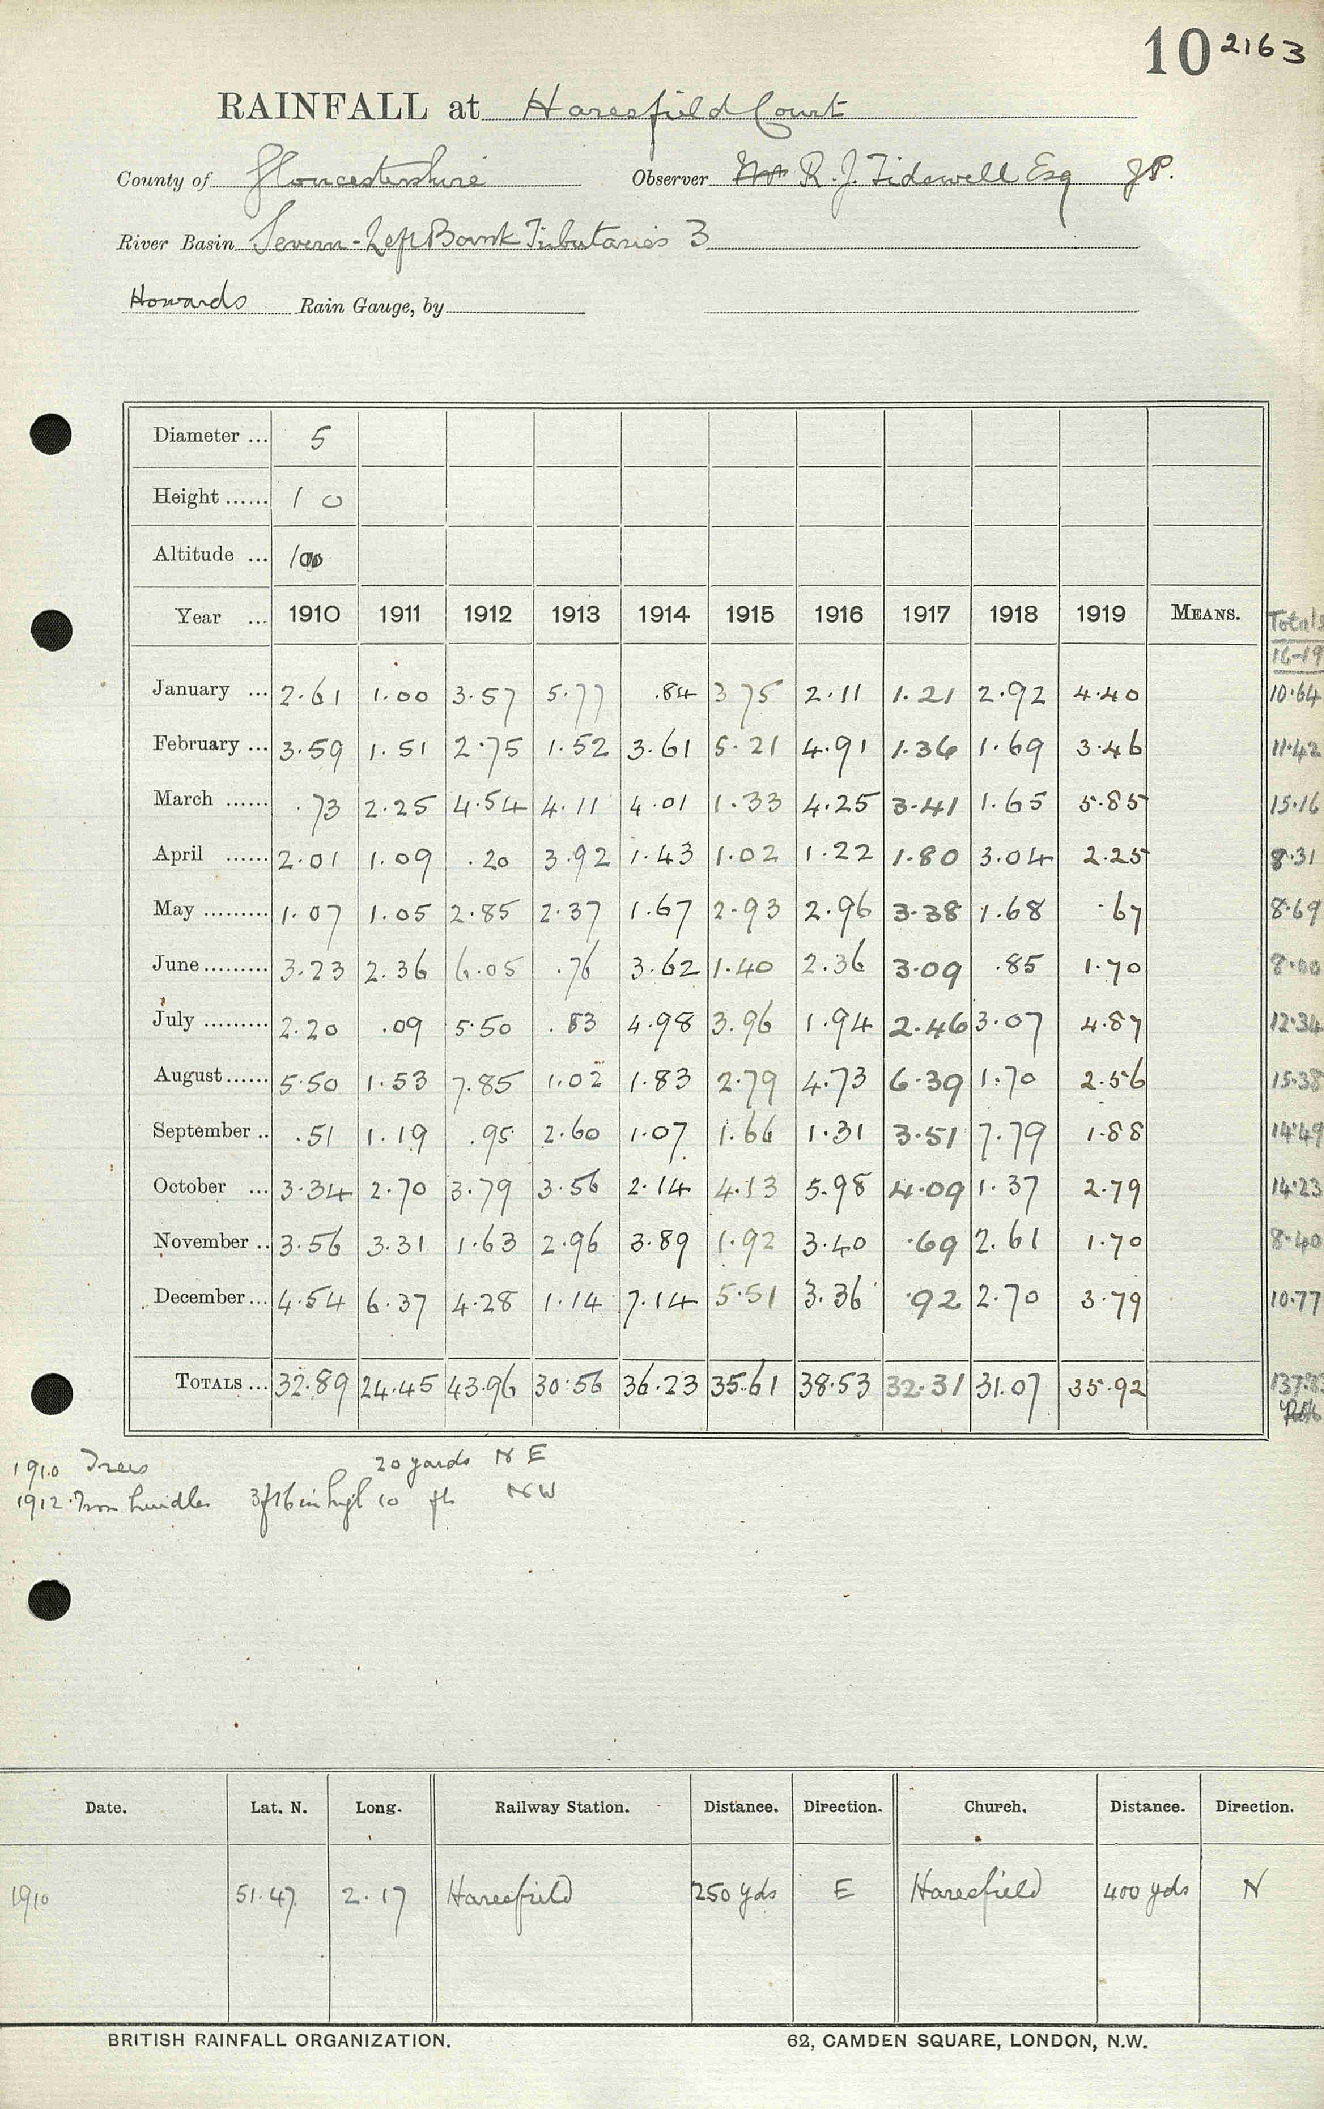 10 2163
RAINFALL at Haresfield Court
County of Gloucestershire Observer R. J. Tidswell Esq JP.
River Basin Severn - Left Bank Tributaries 3
Howards Rain Gauge, by
Diameter ... 5
Height ...... 1 0
Altitude ... 100
Year ... 1910 1911 1912 1913 1914 1915 1916 1917 1918 1919 MEANS. Totals
16-19
January ... 2.61 1.00 3.57 5.77 .84 3 75 2.11 1.21 2.92 4.40 10.64
February ... 3.59 1.51 2.75 1.52 3.61 5.21 4.91 1.36 1.69 3.46 11.42
March ...... .73 2.25 4.54 4.11 4.01 1.33 4.25 3.41 1.65 5.85 15.16
April ...... 2.01 1.09 .20 3.92 1.43 1.02 1.22 1.80 3.04 2.25 8.31
May ......... 1.07 1.05 2.85 2.37 1.67 2.93 2.96 3.38 1.68 .67 8.69
June ......... 3.23 2.36 6.05 .76 3.62 1.40 2.36 3.09 .85 1.70 8.00
July ......... 2.20 .09 5.50 .83 4.98 3.96 1.94 2.46 3.07 4.87 12.34
August ...... 5.50 1.53 7.85 1.02 1.83 2.79 4.73 6.39 1.70 2.56 15.38
September .. .51 1.19 .95 2.60 1.07 1.66 1.31 3.51 7.79 1.88 14.49
October ... 3.34 2.70 3.79 3.56 2.14 4.13 5.98 4.09 1.37 2.79 14.23
November .. 3.56 3.31 1.63 2.96 3.89 1.92 3.40 .69 2.61 1.70 8.40
December ... 4.54 6.37 4.28 1.14 7.14 5.51 3.36 .92 2.70 3.79 10.77
TOTALS ... 32.89 24.45 43.96 30.56 36.23 35.61 38.53 32.31 31.07 35.92 137.83
1910 Trees 20 yards N E
1912. Iron hurdles 3ft 6 in high 10 ft NW
Date. Lat. N. Long. Railway Station. Distance. Direction. Church. Distance. Direction.
1910 51.47 2.17 Haresfield 250 yds E Haresfield 400 yds N
BRITISH RAINFALL ORGANIZATION. 62, CAMDEN SQUARE, LONDON, N.W.